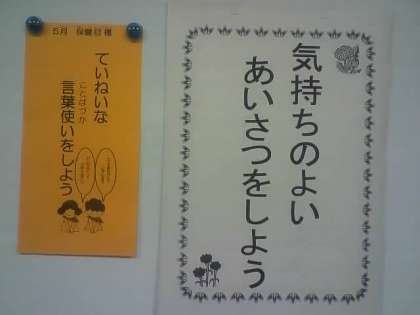 5月 保健目標
ていねいな
ことばづか
言葉使いをしよう
気持ちのよい
あいさつをしよう